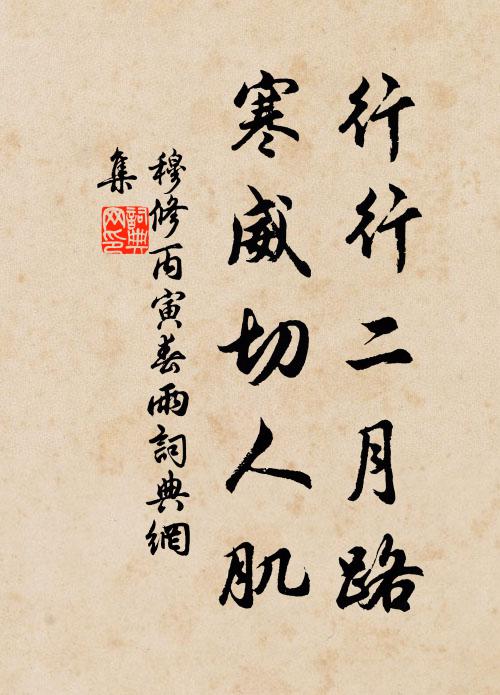 行行二月路
寒威切人肌
穆修丙寅春雨詞典網
集
詞典
网印